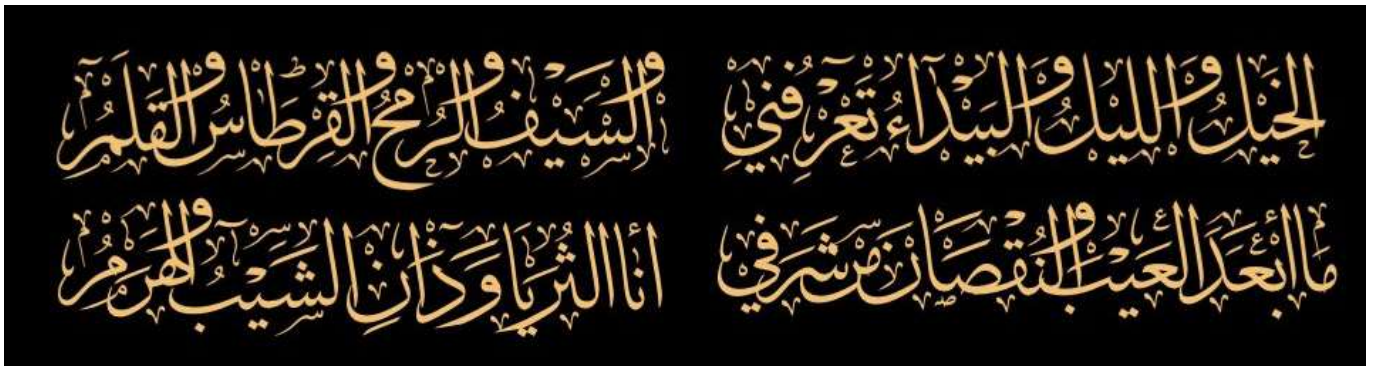 الخَيْلُ وَاللَّيْلُ وَالبَيْدَاءُ تَعْرِفُنِي وَالسَّيْفُ وَالرُّمْحُ وَالقِرْطَاسُ وَالقَلَمُ
مَا أَبْعَدَ العَيْبَ وَالنُّقْصَانَ مِنْ شَرَفِي أَنَا الثُّرَيَّا وَذَانِ الشَّيْبُ وَالهَرَمُ